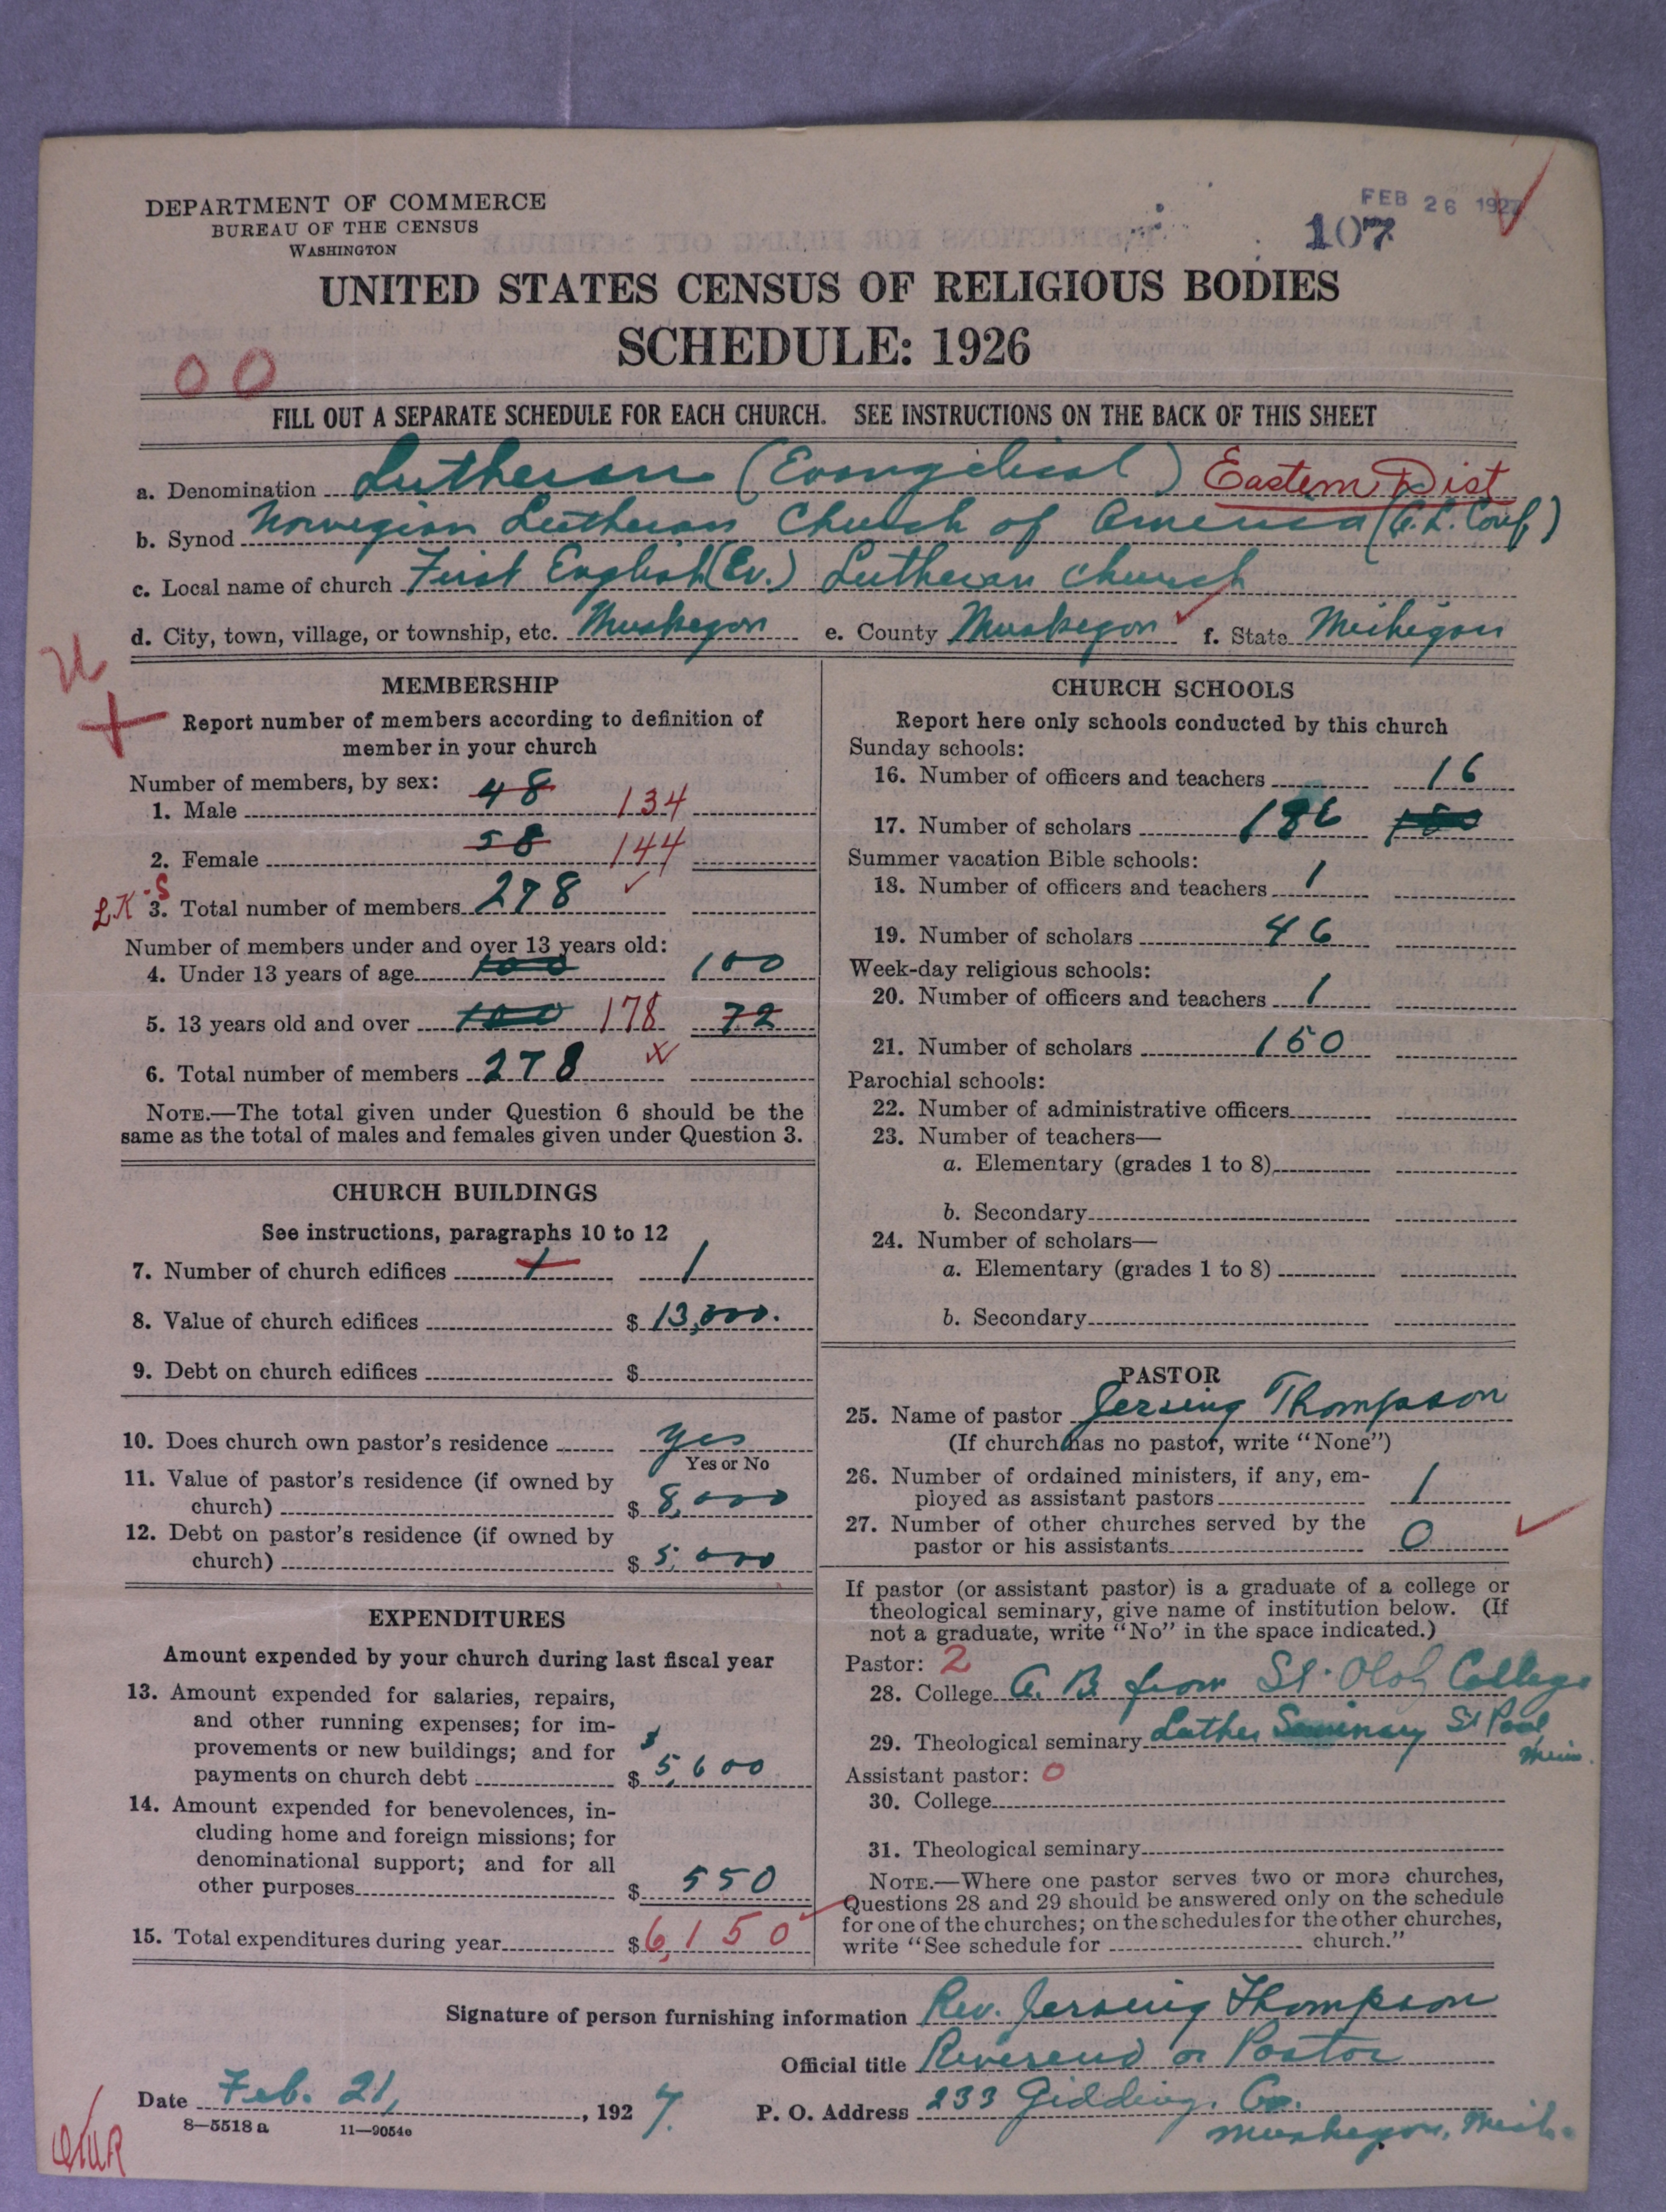 DEPARTMENT OF COMMERCE
BUREAU OF THE CENSUS
WASHINGTON
FEB 26 1927
107
UNITED STATES CENSUS OF RELIGIOUS BODIES
SCHEDULE: 1926
00
FILL OUT A SEPARATE SCHEDULE FOR EACH CHURCH. SEE INSTRUCTIONS ON THE BACK OF THIS SHEET
a. Denomination Lutheran (Evangelical) Eastern Dist
b. Synod Norwegian Lutheran Church of America (E.L. Conf)
c. Local name of church First English (Ev.) Lutheran Church
d. City, town, village, or township, etc. Muskegon e. County Muskegon f. State Michigan
MEMBERSHIP
Report number of members according to definition of
member in your church
Number of members, by sex:
1. Male 48 134
2. Female 58 144
LK-S
3. Total number of members 278
Number of members under and over 13 years old:
4. Under 13 years of age 100 100
5. 13 years old and over 100 178 72
6. Total number of members 278
NOTE.—The total given under Question 6 should be the
same as the total of males and females given under Question 3.
CHURCH BUILDINGS
See instructions, paragraphs 10 to 12
7. Number of church edifices 1 1
8. Value of church edifices $ 13,000.
9. Debt on church edifices $
10. Does church own pastor's residence yes
Yes or No
11. Value of pastor's residence (if owned by
church) $ 8,000
12. Debt on pastor's residence (if owned by
church) $ 5,000
EXPENDITURES
Amount expended by your church during last fiscal year
13. Amount expended for salaries, repairs,
and other running expenses; for im-
provements or new buildings; and for
payments on church debt $ 5,600
14. Amount expended for benevolences, in-
cluding home and foreign missions; for
denominational support; and for all
other purposes $ 550
15. Total expenditures during year $ 6,150
CHURCH SCHOOLS
Report here only schools conducted by this church
Sunday schools:
16. Number of officers and teachers 16
17. Number of scholars 186
Summer vacation Bible schools:
18. Number of officers and teachers 1
19. Number of scholars 46
Week-day religious schools:
20. Number of officers and teachers 1
21. Number of scholars 150
Parochial schools:
22. Number of administrative officers
23. Number of teachers—
a. Elementary (grades 1 to 8)
b. Secondary
24. Number of scholars—
a. Elementary (grades 1 to 8)
b. Secondary
PASTOR
25. Name of pastor Jersing Thompson
(If church has no pastor, write "None")
26. Number of ordained ministers, if any, em-
ployed as assistant pastors 1
27. Number of other churches served by the
pastor or his assistants 0
If pastor (or assistant pastor) is a graduate of a college or
theological seminary, give name of institution below. (If
not a graduate, write "No" in the space indicated.)
Pastor: 2
28. College A. B from St. Olaf College
29. Theological seminary Luther Seminary St Paul
Minn.
Assistant pastor: 0
30. College
31. Theological seminary
NOTE.—Where one pastor serves two or more churches,
Questions 28 and 29 should be answered only on the schedule
for one of the churches; on the schedules for the other churches,
write "See schedule for church."
Signature of person furnishing information Rev. Jersing Thompson
Official title Reverend or Pastor
Date Feb. 21, 1927. P. O. Address 233 Giddings
Muskegon, Mich.
8—5518 a 11—9054c